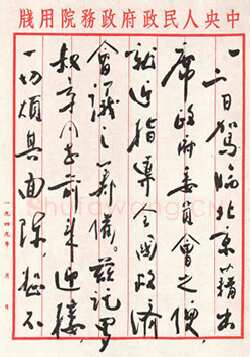 中央人民政府政務院用牋
一二日駕臨北京藉出
席政府委員會之便,
就近指導全國救濟
會議之籌備。茲託羅
叔章同志前來迎接,
一切煩其面陳,恕不
一九四九年 月 日